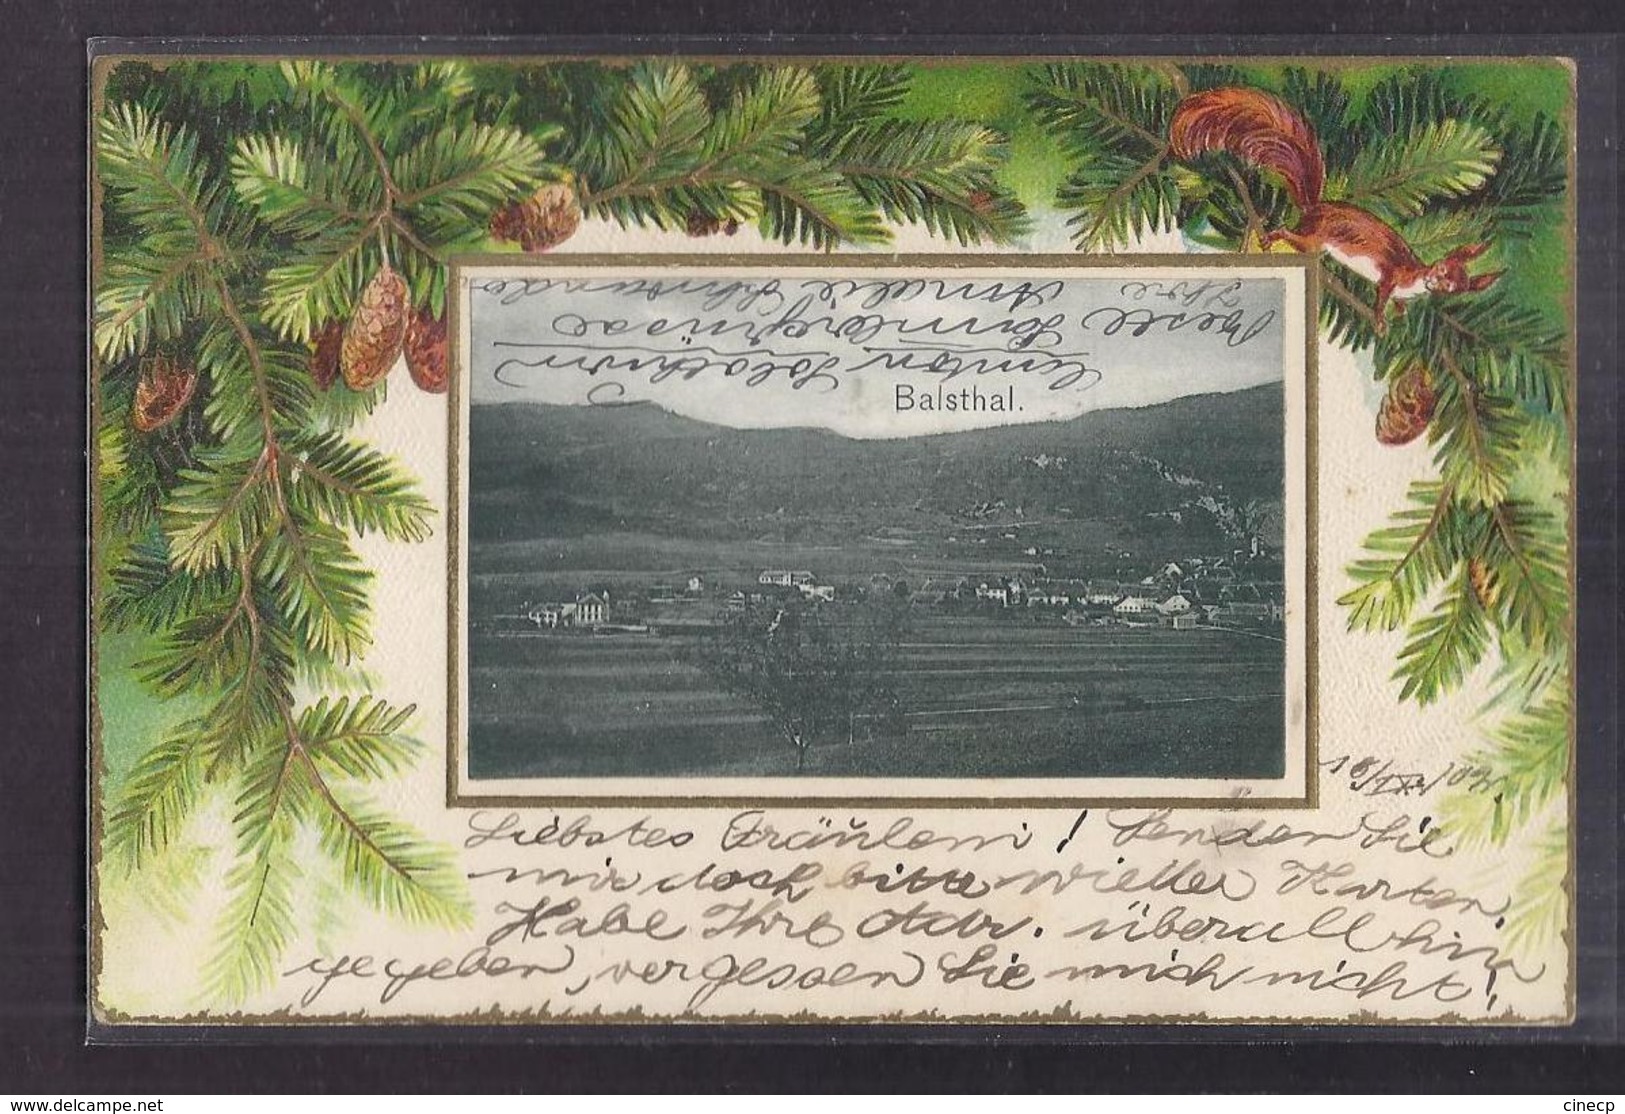 Balsthal.
18/IX. 04.
Liebstes Fräulein! Senden Sie
mir doch bitte wieder Karten.
Habe Ihre Adr. überall hin
gegeben, vergessen Sie mich nicht!
Beste
Ihre Amalie
Solothurn
www.delcampe.net
cinecp